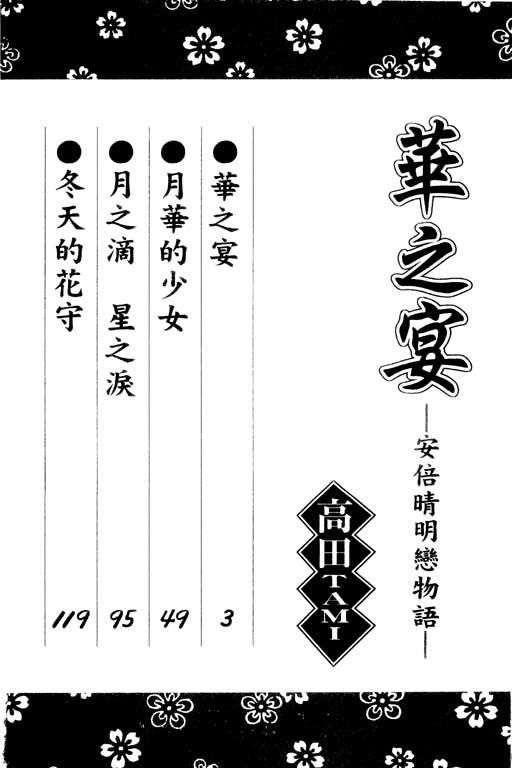 華之宴
—安倍晴明戀物語—
高田TAMI
●華之宴 3
●月華的少女 49
●月之滴 星之淚 95
●冬天的花守 119